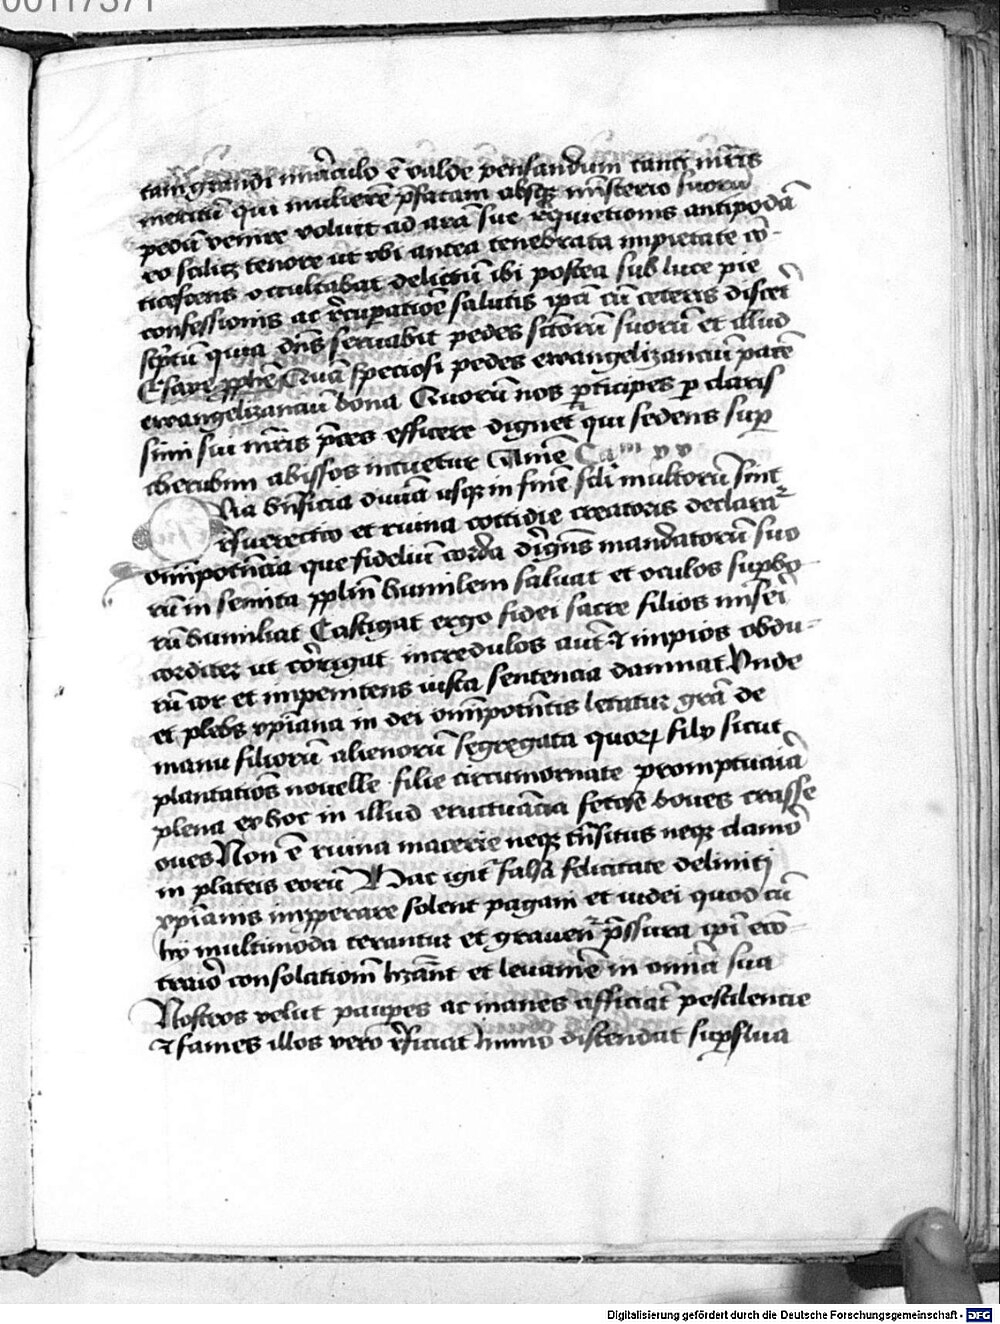 00117371
tam grandi mi᷑aculo ē valde pensandum tanti mr̄is
meritū qui mulierē p̄fatam absq̨ mīsterio suorū
pedū venire voluit ad arā sue req̇etionis antipodā
eo scilic̨ tenore ut vbi antea tenebrata impietate cō-
ticescens occultabat delictū ibi postea sub luce pie
confessionis ac r̄cuꝑatiōe salutis ip̄a cū ceteris discer̄
sc̄ptū quia dn̄s seruabit pedes sc̄torū suorū et illud
Esaye ꝓphē Quā speciosi pedes ewangelizanciū pacē
ewangelizanciū bona Quorū nos ꝑticipes ꝑ claris
simi sui mr̄is p̄ces efficere dignet̄ qui sedens suꝑ
cherubim abissos intuetur Amē Cam xv
Ria bn̄ficia diuīa usq̨ in finē sc̄li multorū sint
r̄surrectio et ruina cottidie creatoris declarat᷑
om̄ipotēcia que fideliū corda dirigēs mandatorū suo
rū in semita ꝓplm̄ humilem saluat et oculos suꝑbo
rū humiliat Castigat ergo fidei sacre filios mīsei
corditer ut cōrigat incredulos aūt ⁊ impios obdu-
rū cor et impenitens iusta sentencia damnat Vnde
et plebs xp̄iana in dei om̄ipotētis letatur gr̄a de
manu filiorū alienorū segregata quoꝝ filij sicut
plantatiōs nouelle filie circumornate promptuaīa
plena ex hoc in illud eructuācia fetose boues crasse
oues Non ē ruina macerie neq̨ trāsitus neq̨ clamor̄
in plateis eorū Hac igit̄ falsa felicitate deliniti
xp̄ianis imꝓperare solent pagani et iudei quod cū
hij multimoda terantur et grauent᷑ p̄ssura ip̄i ecō-
trario consolationē h̄eant et leuamē in omīa sua
Nostros velut pauꝑes ac inanes afficiat pestilencie
⁊ fames illos vero r̄ficiat ymmo distendat suꝑflua
Digitalisierung gefördert durch die Deutsche Forschungsgemeinschaft - DFG